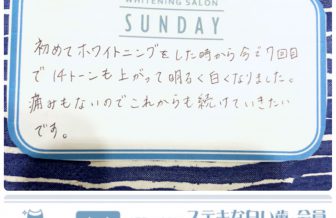 WHITENING SALON
SUNDAY
初めてホワイトニングをした時から今で7回目
で14トーンも上がって明るく白くなりました。
痛みもないのでこれからも続けていきたい
です。
ステキな白い歯